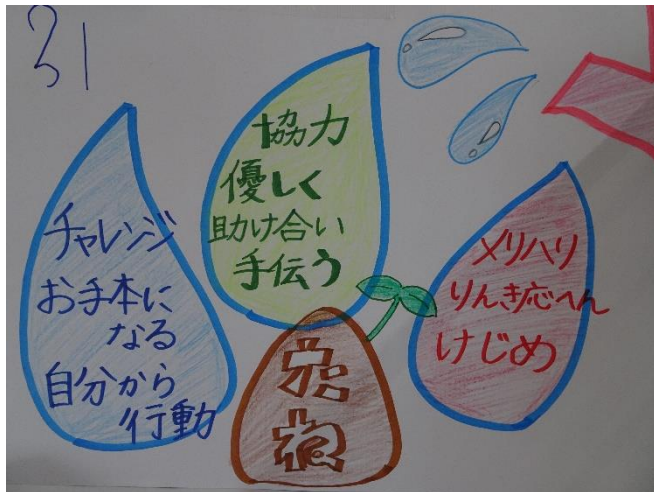 31
チャレンジ
お手本に
なる
自分から
行動
協力
優しく
助け合い
手伝う
メリハリ
りんき応へん
けじめ